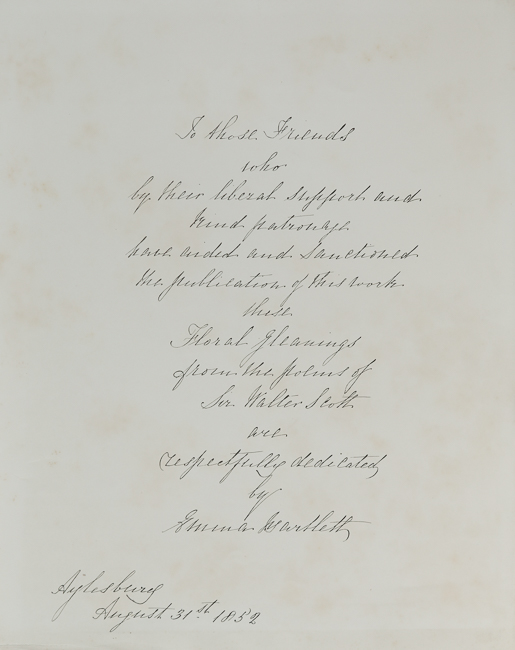 To those Friends
who
by their liberal support and
kind patronage
have aided and sanctioned
the publication of this work
these
Floral Gleanings
from the poems of
Sir Walter Scott
are
respectfully dedicated
by
Emma Bartlett
Aylesbury
August 31st 1852